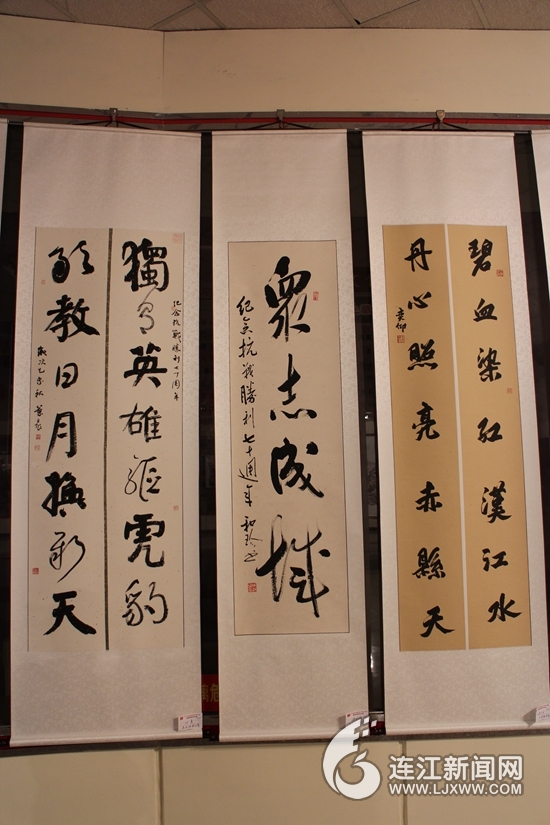 碧血染红漢江水
丹心照亮赤縣天
眾志成城
纪念抗战勝利七十週年
獨有英雄驱虎豹
纪念抗战胜利七十周年
敢教日月換新天
歲次乙未秋
连江新闻网
WWW.LJXWW.COM